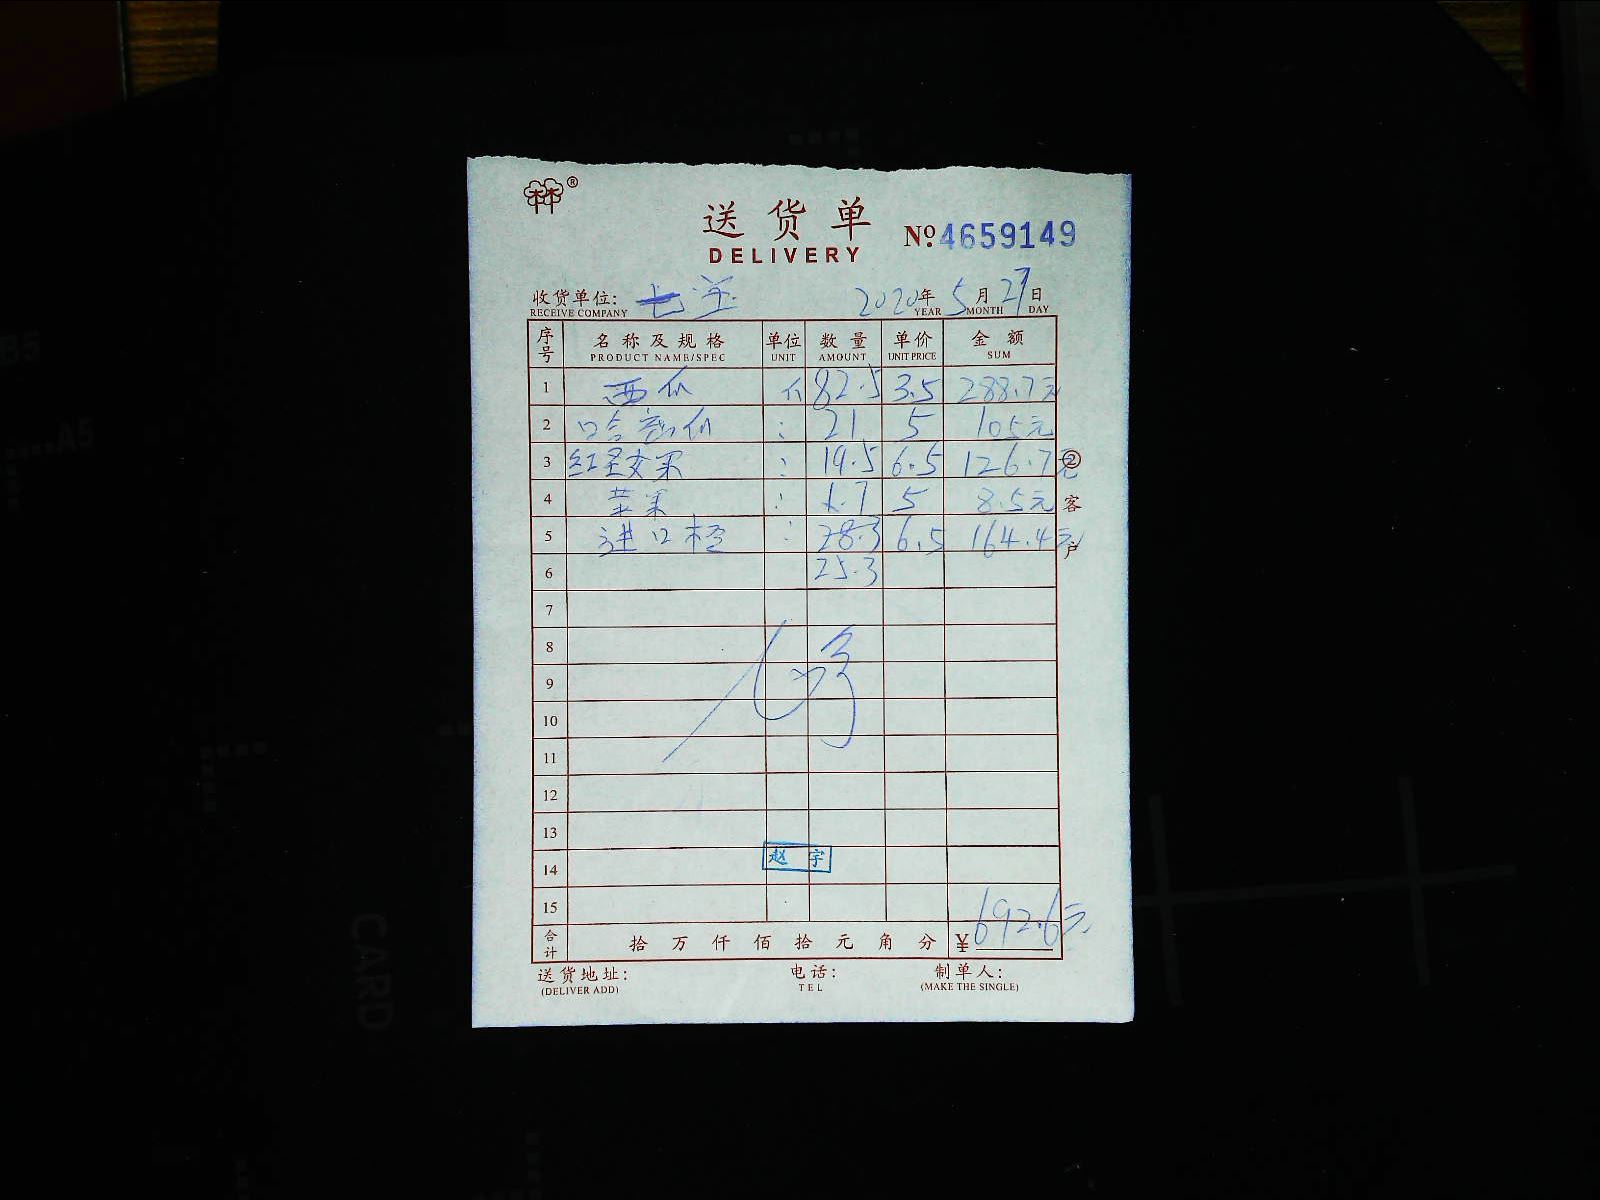 林®
送货单 №4659149
DELIVERY
收货单位: 2020年5月27日
RECEIVE COMPANY YEAR MONTH DAY
序号 名称及规格 单位 数量 单价 金额
PRODUCT NAME/SPEC UNIT AMOUNT UNIT PRICE SUM
1 西瓜 斤 82.5 3.5 288.7元
2 口合密瓜 : 21 5 105元
3 红星苹果 : 19.5 6.5 126.7元 ②
4 苹果 : 1.7 5 8.5元 客
5 进口橙 : 28.3 6.5 164.4元 户
6 25.3
7
8
9
10
11
12
13
14 赵宇
15
合计 拾万仟佰拾元角分 ¥692.6元
送货地址: 电话: 制单人:
(DELIVER ADD) TEL (MAKE THE SINGLE)
A5
CARD